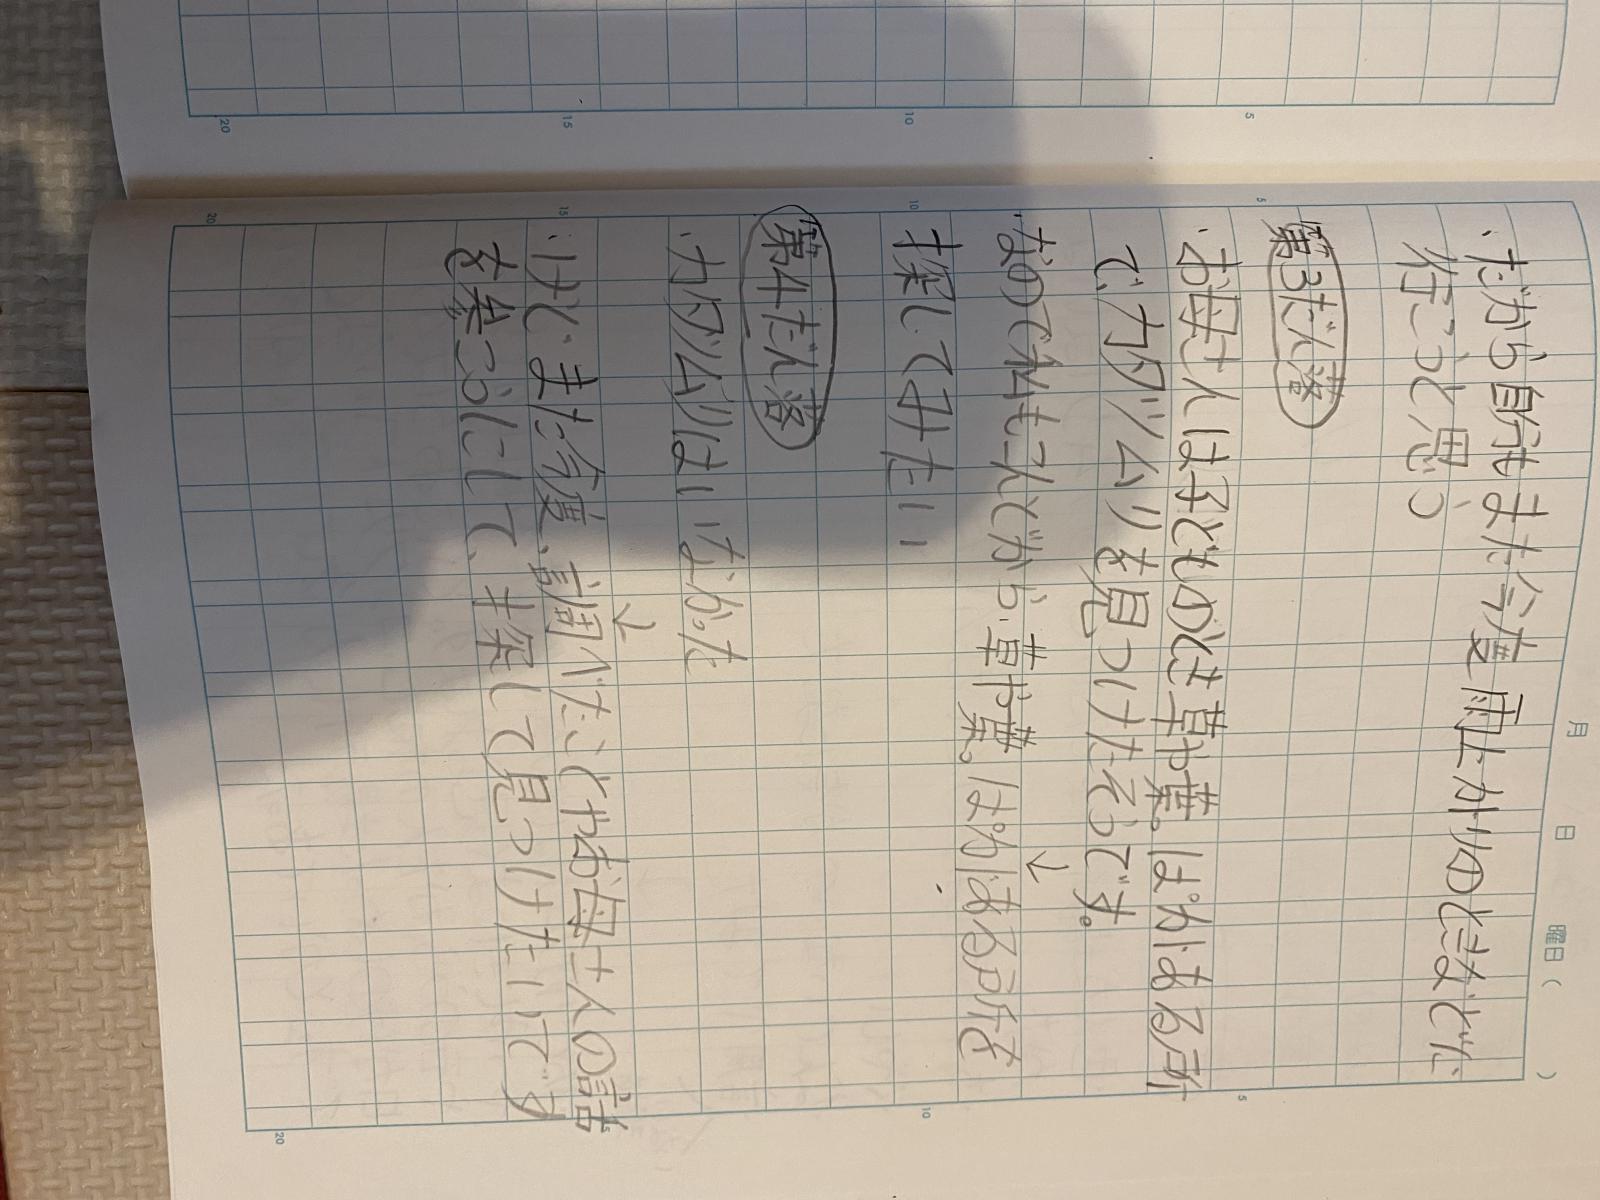 月 日 曜日( )
・だから自分もまた今度雨上がりのときなどに
行こうと思う
第3だん落
・お母さんは子どものとき草や葉っぱがある所
で、カタツムリを見つけたそうです。
↓
・なので私もこんどから草や葉っぱがある所を
探してみたい
第4だん落
・カタツムリはいなかった
↓
・けど、また今度、調べたことやお母さんの話
を参こうにして、探して見つけたいです
5
10
15
20
5
10
15
20
5
10
15
20